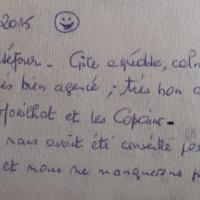 2015
séjour - Gîte agréable, cal
bien agencé ; très bon
et les Copains -
nous avait été conseillé
et nous ne manquerons